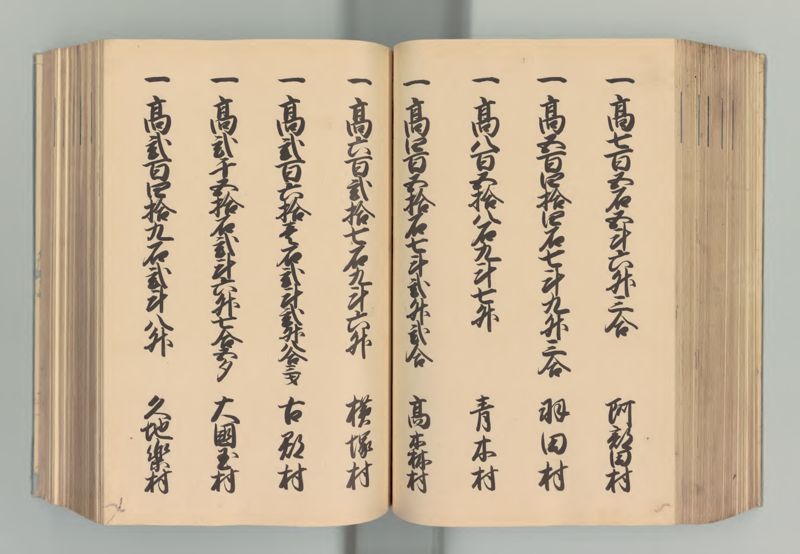 一高七百五石五斗六升三合 阿部田村
一高五百四拾四石七斗九升三合 羽田村
一高八百五拾八石九斗七升 青木村
一高四百五拾石七斗弐升弐合 高森村
一高六百弐拾七石九斗六升 横塚村
一高弐百六拾壱石弐斗弐升八合 古郡村
一高弐千五拾石弐斗六升七合 大國玉村
一高弐百四拾九石弐斗八升 久地楽村